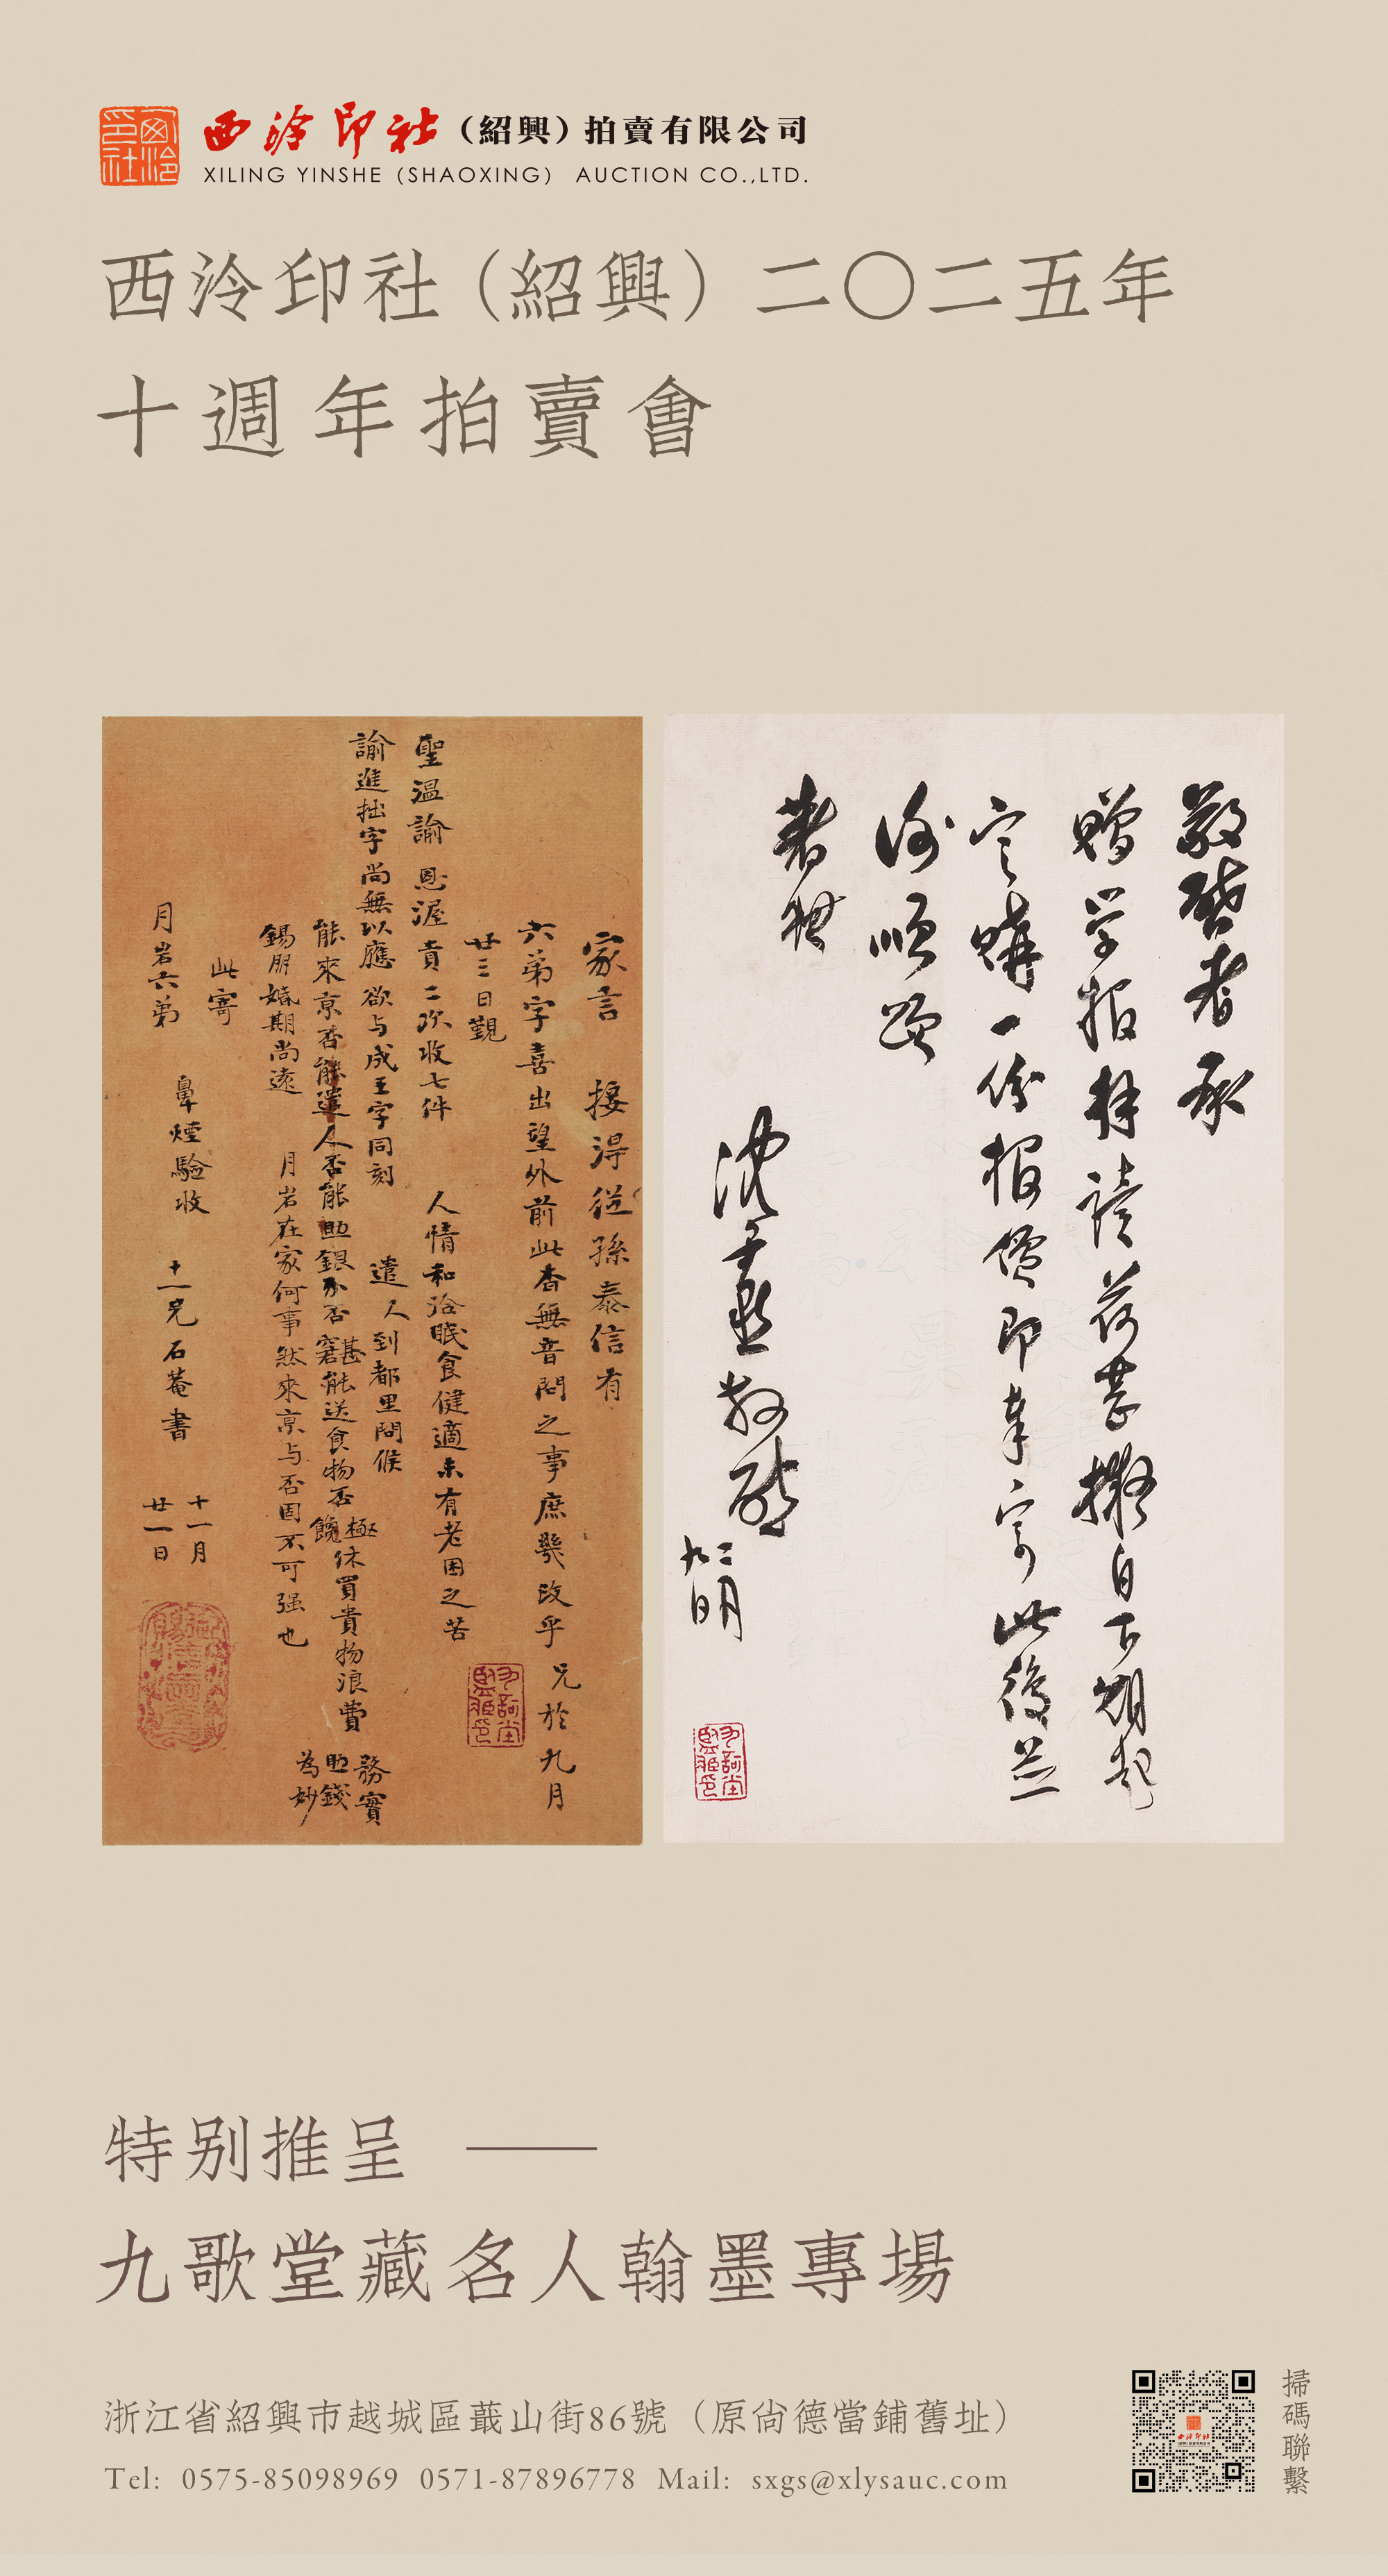 西泠印社
西泠印社（紹興）拍賣有限公司
XILING YINSHE (SHAOXING) AUCTION CO.,LTD.
西泠印社（紹興）二〇二五年
十週年拍賣會
敬啓者承
贈学报拜讀荷甚擬自下期起
定購一份报價即奉寄此復並
頌順
著祺
沈尹默敬啟
二月
九日
家言 接得從孫泰信有
六弟字喜出望外前此杳無音問之事庶幾改乎 兄於九月
廿三日覲
聖温諭 恩渥 貢二次收七件 人情和洽眠食健適未有老困之苦
諭進拙字尚無以應欲与成王字同刻 遣人到都里問候
能來京否能遣人否能助銀不否窘甚能送食物否饞極休買貴物浪費 務實助錢為妙
錫朋婚期尚遠 月岩在家何事然來京与否固不可强也
此寄
月岩六弟
鼻煙驗收 十一兄石菴書 十一月
廿一日
特别推呈 ——
九歌堂藏名人翰墨專場
浙江省紹興市越城區蕺山街86號（原尙德當鋪舊址）
Tel: 0575-85098969 0571-87896778 Mail: sxgs@xlysauc.com
掃碼聯繫